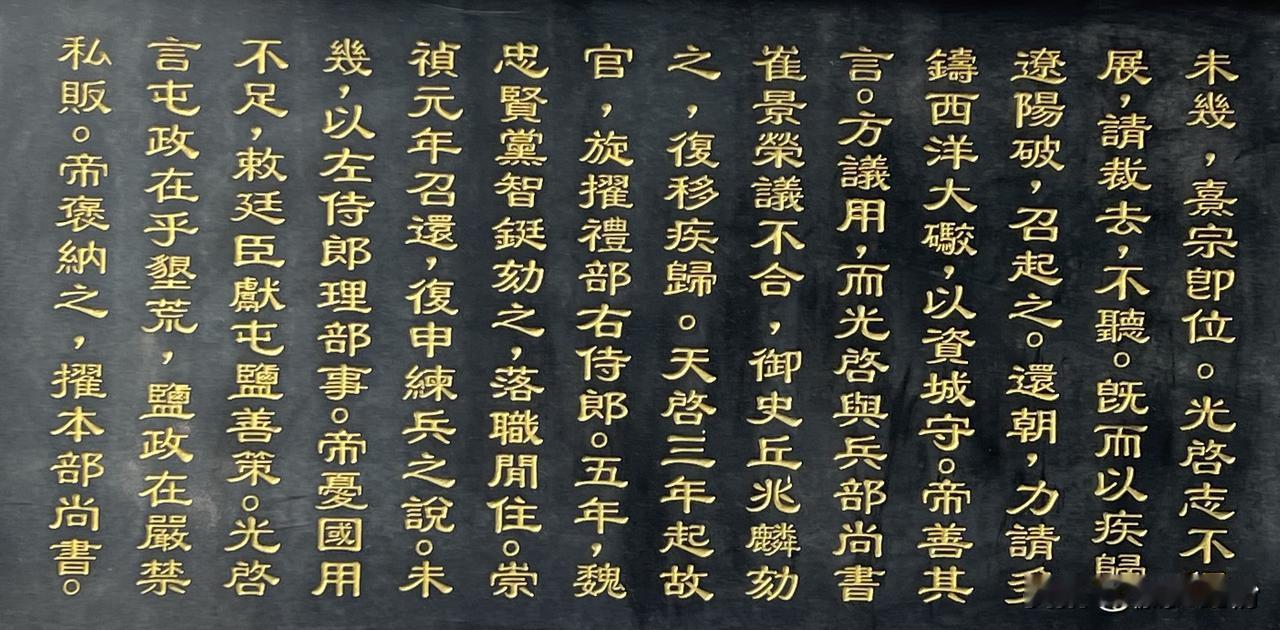 未幾，熹宗卽位。光啓志不
展，請裁去，不聽。旣而以疾歸
遼陽破，召起之。還朝，力請多
鑄西洋大礮，以資城守。帝善其
言。方議用，而光啓與兵部尚書
崔景榮議不合，御史丘兆麟劾
之，復移疾歸。天啓三年起故
官，旋擢禮部右侍郎。五年，魏
忠賢黨智鋌劾之，落職閒住。崇
禎元年召還，復申練兵之說。未
幾，以左侍郎理部事。帝憂國用
不足，敕廷臣獻屯鹽善策。光啓
言屯政在乎墾荒，鹽政在嚴禁
私販。帝褒納之，擢本部尚書。